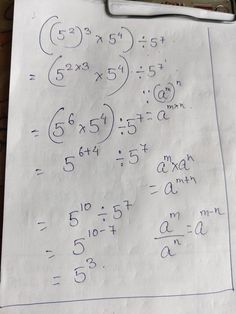 ((5²)³ × 5⁴) ÷ 5⁷
= (5²ˣ³ × 5⁴) ÷ 5⁷
∵ (aᵐ)ⁿ = aᵐˣⁿ
= (5⁶ × 5⁴) ÷ 5⁷
= 5⁶⁺⁴ ÷ 5⁷
aᵐ × aⁿ
= aᵐ⁺ⁿ
= 5¹⁰ ÷ 5⁷
= 5¹⁰⁻⁷
aᵐ/aⁿ = aᵐ⁻ⁿ
= 5³.